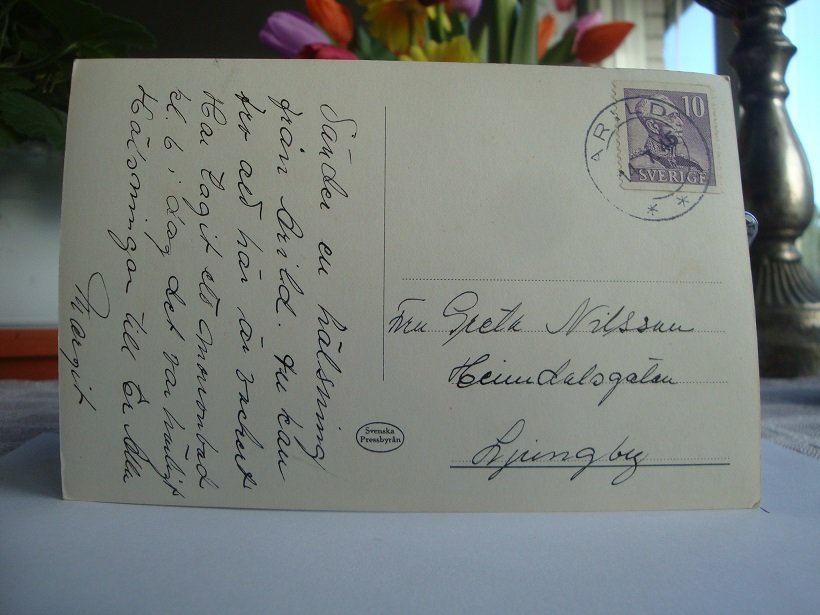 Sänder en hälsning
från Arild. Du kan
tro att här är vackert
Har tagit ett morronbad
kl. 6 i dag det var härligt
Hälsningar till Er Alla
Margit
ARILD
10
SVERIGE
Fru Greta Nilsson
Heimdalsgatan
Ljungby
Svenska
Pressbyrån